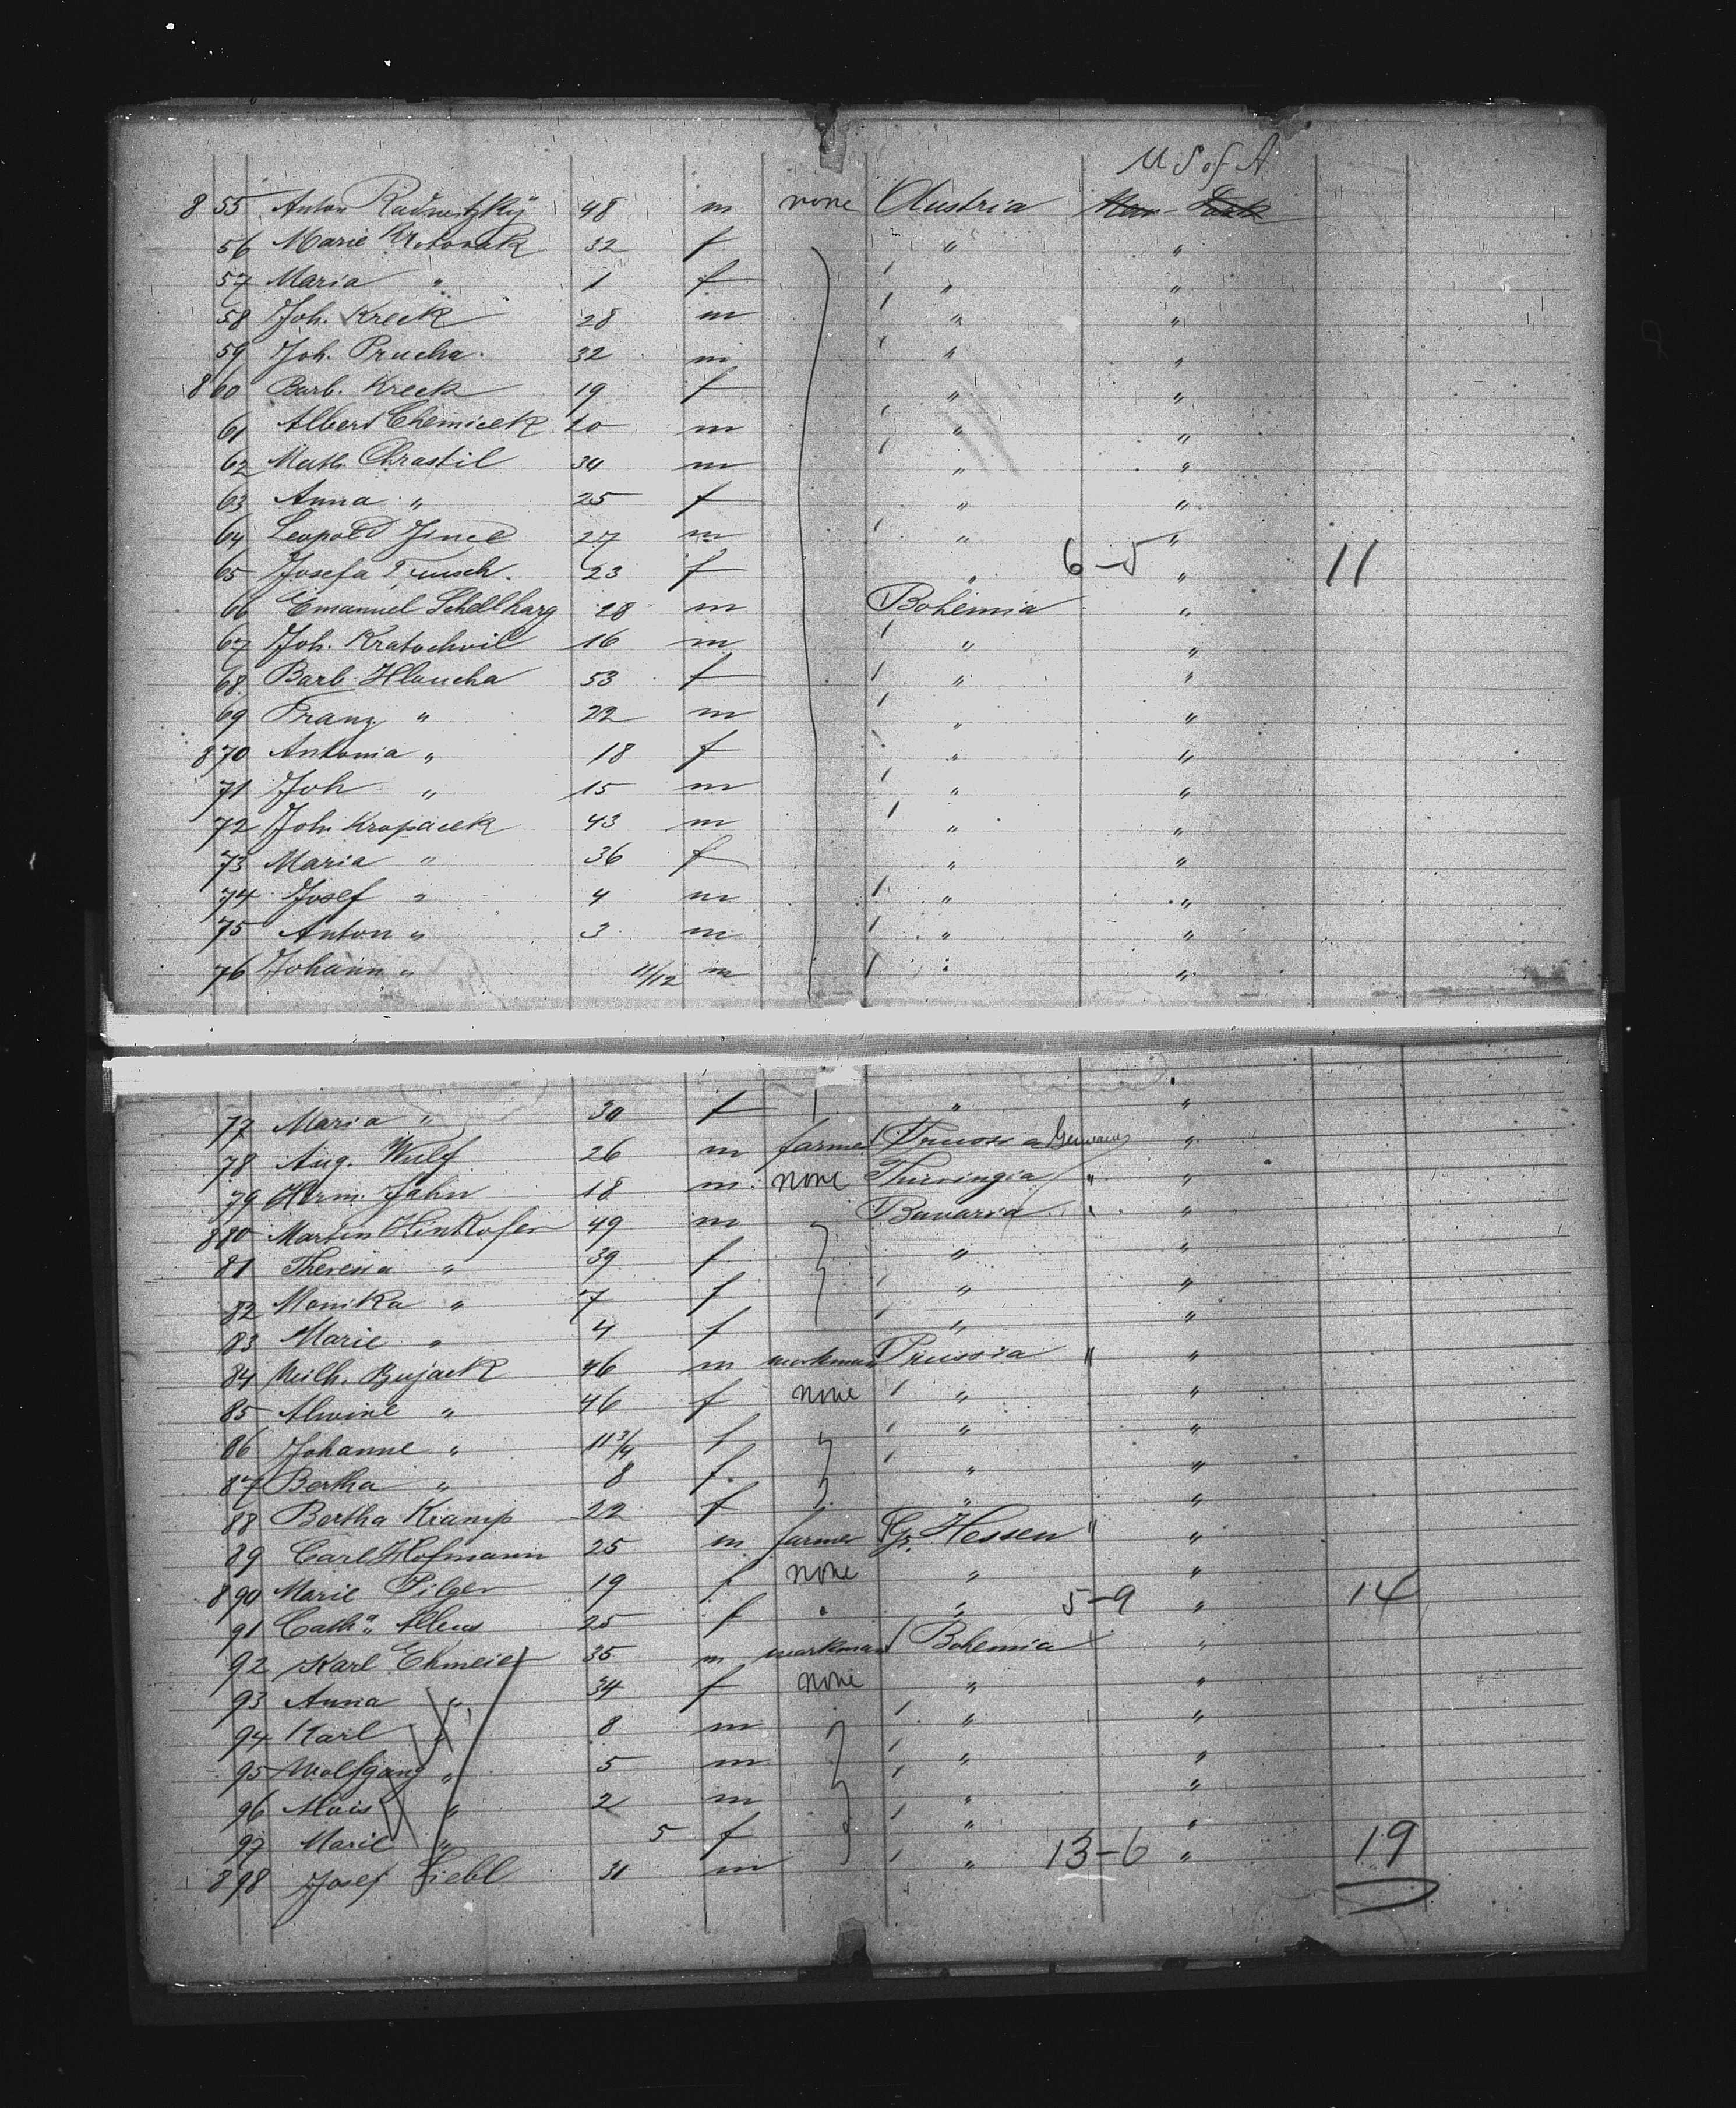 U S of A
8 55 Anton Radnitzky 48 m none Austria New-York
56 Marie 32 f " "
57 Maria " 1 f " "
58 Joh. Kreck 28 m " "
59 Joh. Prucha. 32 m " "
860 Barb. Kreck 19 f " "
61 Albert 20 m " "
62 Math. Chrastil 34 m " "
63 Anna " 25 f " "
64 Leopold 27 m " "
65 Josefa 23 f " 6-5 " 11
66 Emanuel Schellharg 28 m Bohemia "
67 Joh. Kratochvil 16 m " "
68 Barb. Hlaucha 53 f " "
69 Franz " 22 m " "
870 Antonia " 18 f " "
71 Joh " 15 m " "
72 Joh Kropacek 43 m " "
73 Maria " 36 f " "
74 Josef " 4 m " "
75 Anton " 3 m " "
76 Johann " 11/12 m " "
77 Maria " 30 f " "
78 Aug. Wulf 26 m farmer Prussia Germany "
79 Herm. Jahn 18 m none Thuringia " "
880 Martin Hinkofer 49 m Bavaria " "
81 Theresia " 39 f " "
82 Monika " 7 f " "
83 Marie " 4 f " "
84 Wilh. Bujack 46 m workman Prussia " "
85 Alwine " 46 f none " "
86 Johanne " 11 3/4 f " "
87 Bertha " 8 f " "
88 Bertha Kramp 22 f " "
89 Carl Hofmann 25 m farmer Gr. Hessen " "
890 Marie Pilger 19 f none " "
91 Cath. 25 f " " 5-9 " 14
92 Karl Ehmeier 35 m workman Bohemia "
93 Anna " 34 f none " "
94 Karl " 8 m " "
95 Wolfgang " 5 m " "
96 Alois " 2 m " "
97 Marie " 5 f " "
898 Josef Liebl 31 m " 13-6 " 19